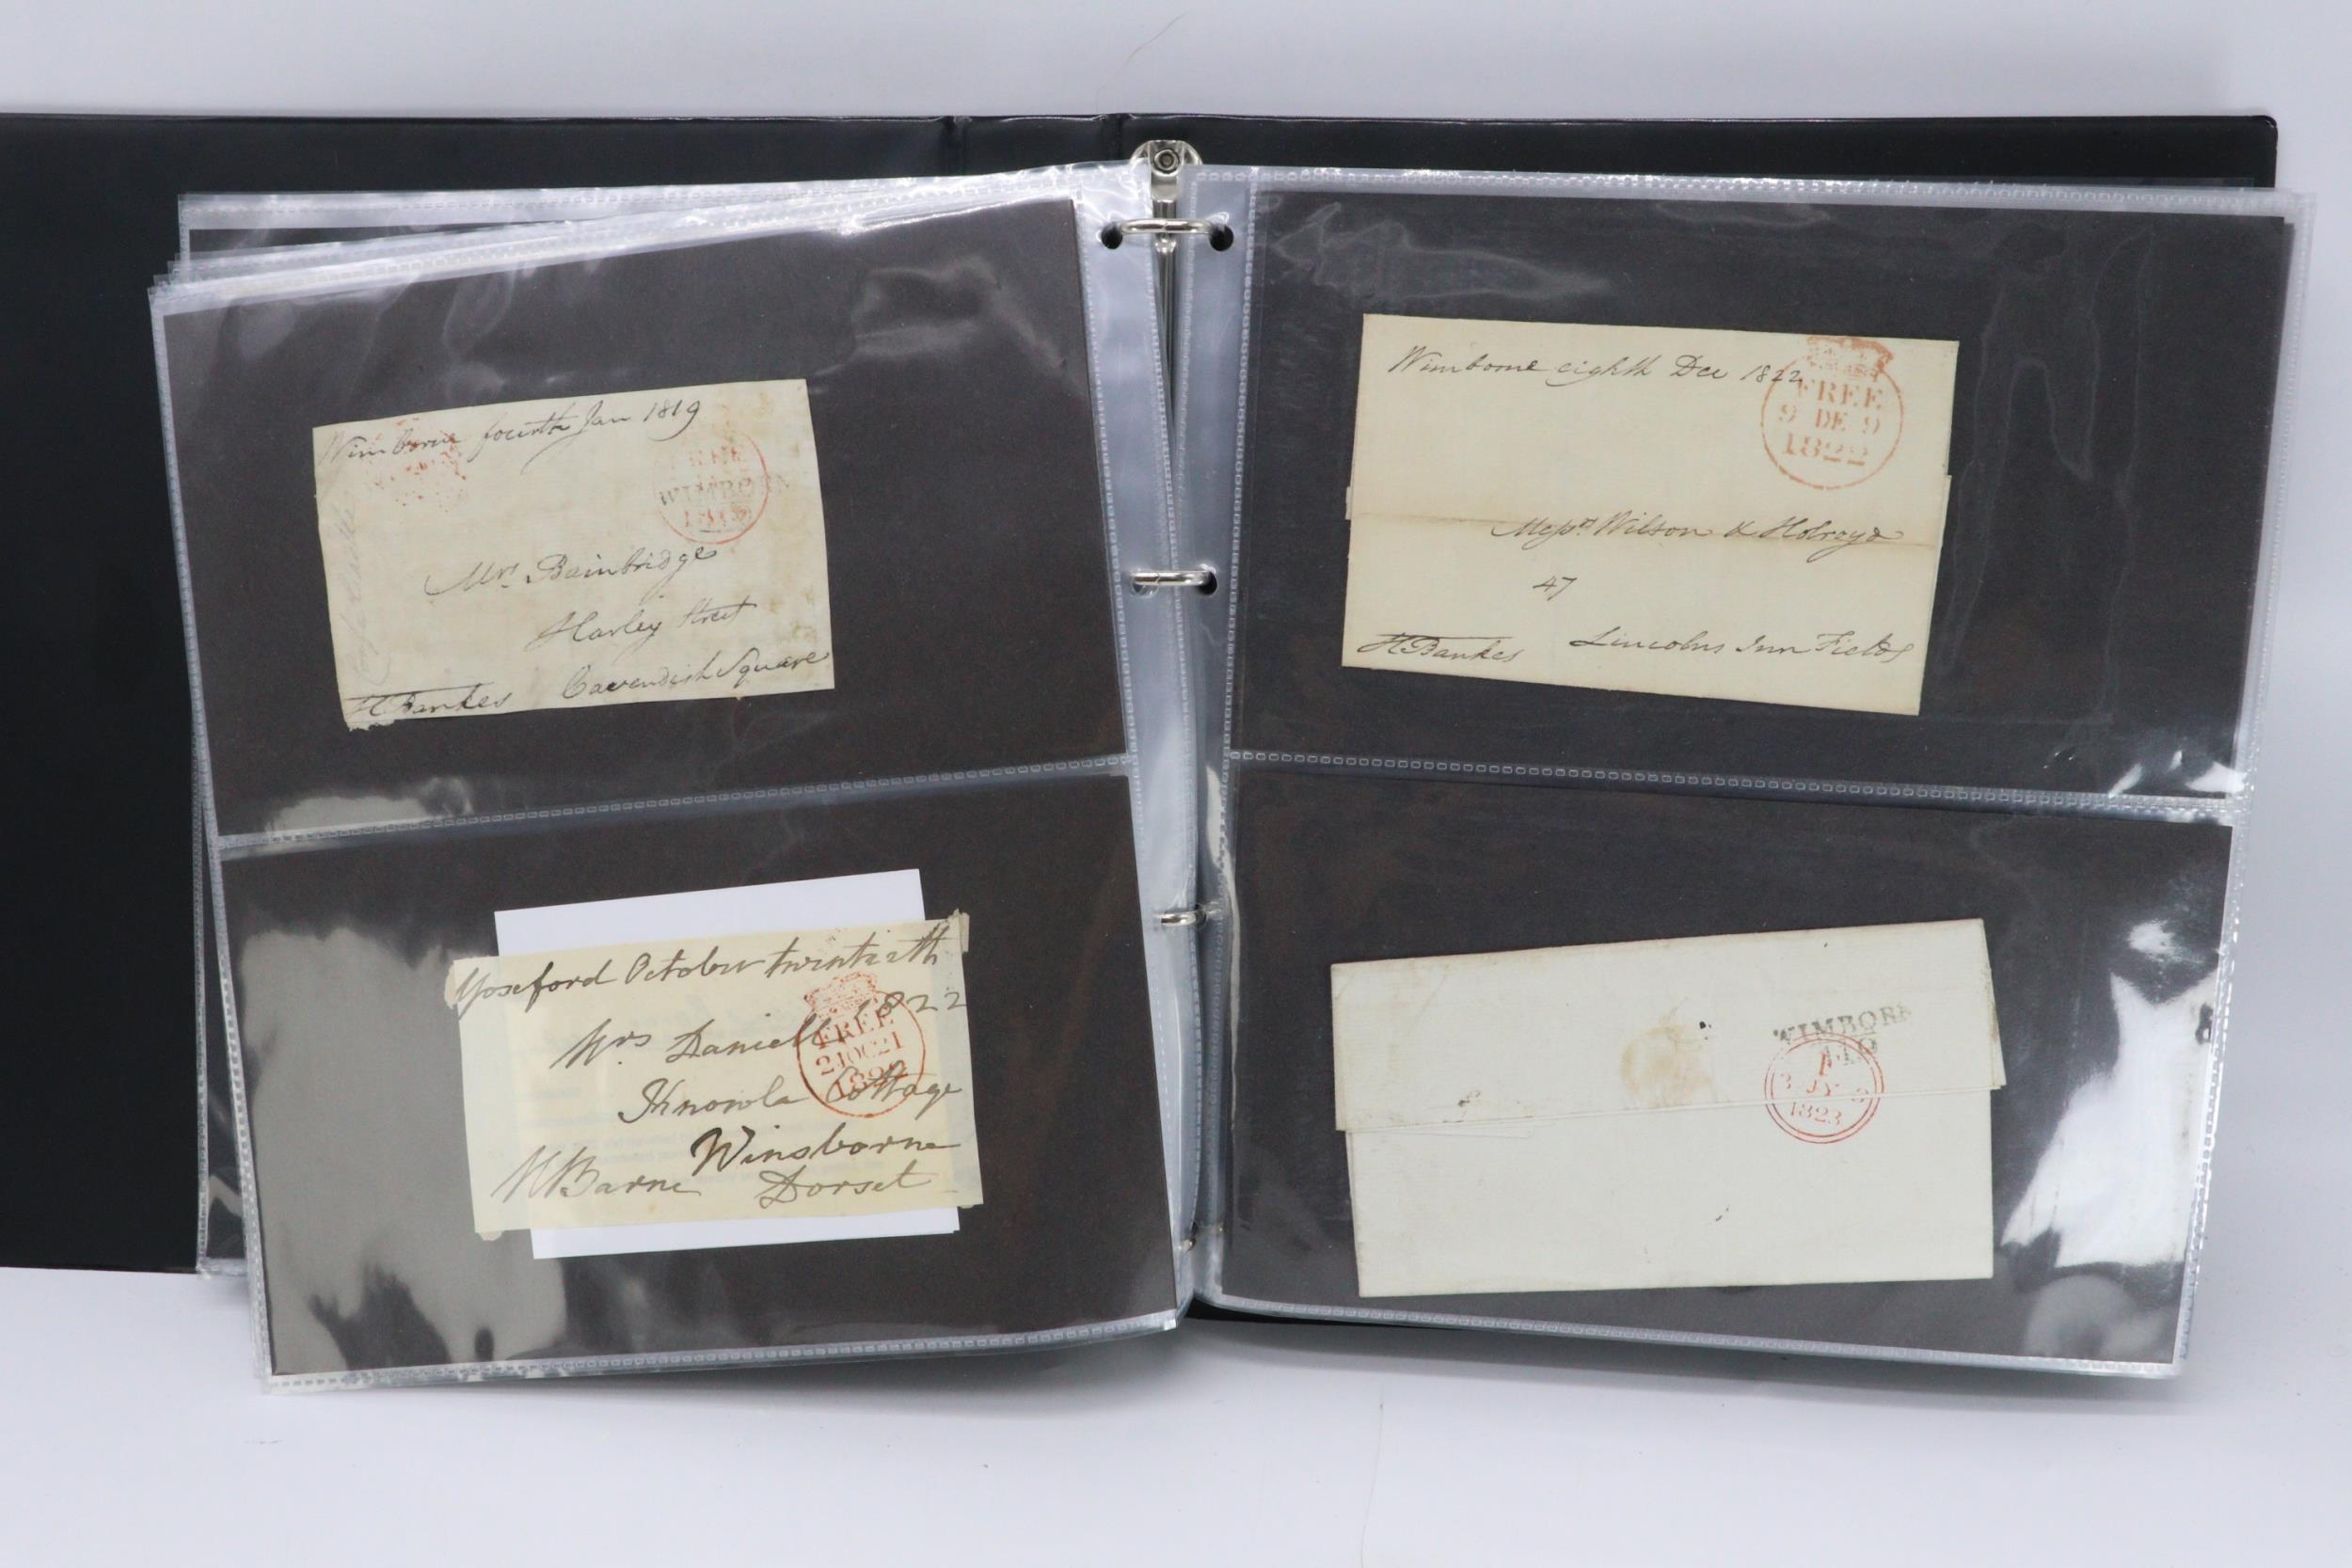 Wimborne fourth Jan 1819
FREE
WIMBORN
Mrs. Bainbridge
Harley Street
Cavendish Square
H Bankes
Yoxford October twentieth
1822
FREE
21 OC 21
1822
Mrs Daniell
Knowle Cottage
Winsborne
Dorset
M Barne
Wimborne eighth Dec 1822
FREE
9 DE 9
1822
Messrs Wilson & Holroyd
47
Lincolns Inn Fields
H Bankes
WIMBORN
1823